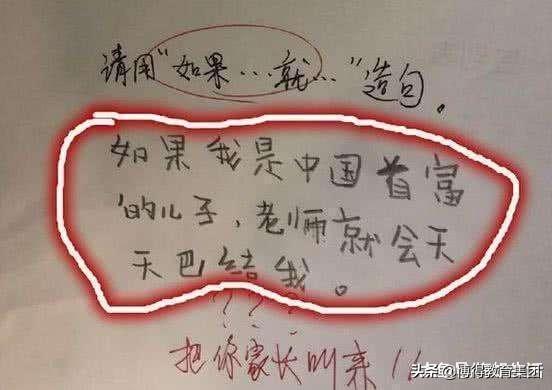 请用“如果…就…”造句。
如果我是中国首富
的儿子，老师就会天
天巴结我。
???
把你家长叫来!!
头条@博得教育集团